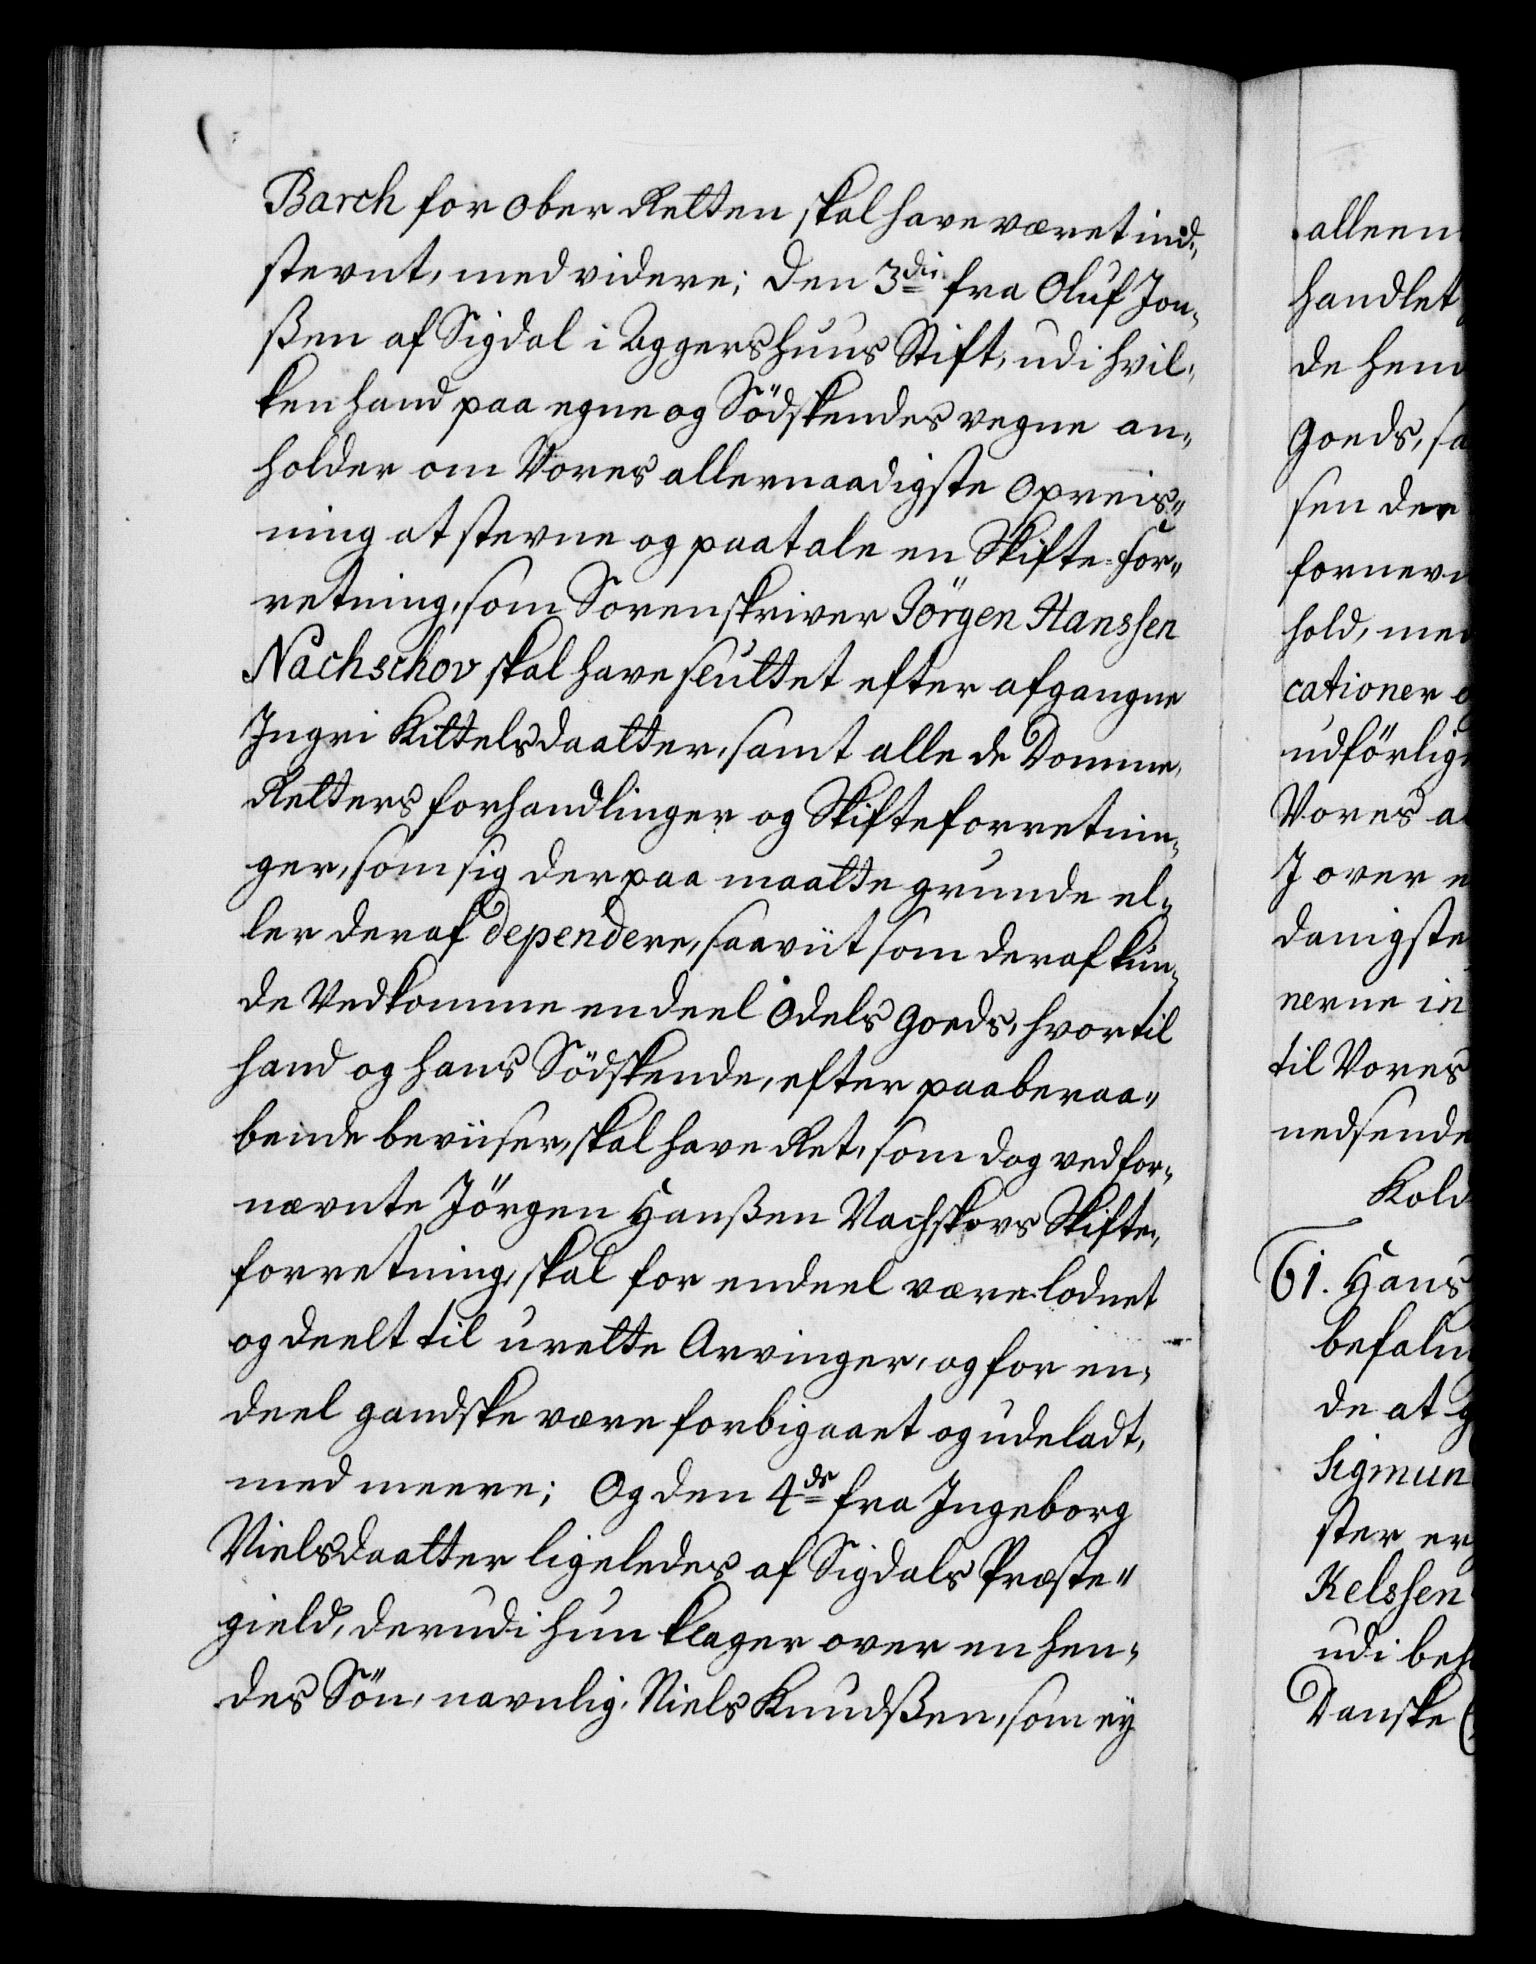 Barch for Ober Retten skal have været ind„
stevnt, med videre; Den 3die fra Oluf Jon„
ßen af Sigdal i Aggershuus Stift, udi hvil„
ken hand paa egne og Södskendes vegne an„
holder om Vores allernaadigste Opreis„
ning at stevne og paatale en Skifte-For„
retning, som Sorenskriver Jörgen Hanssen
Nachschov skal have sluttet efter afgangne
Ingri Kittelsdaatter, samt alle de Domme,
Retters forhandlinger og Skifteforretnin„
ger, som sig derpaa maatte grunde el„
ler deraf dependere, saaviit som deraf kun„
de Vedkomme endeel Odels Goeds, hvortil
hand og hans Södskende, efter paaberaa„
bende beviiser, skal have Ret, som dog ved for„
nævnte Jörgen Hanßen Nachskovs Skifte„
forretning, skal for endeel være lodnet
og deelt til urette Arvinger, og for en„
deel gandske være forbigaaet og udeladt,
med meere; Og den 4de fra Ingeborg
Nielsdaatter ligeledes af Sigdals Præste„
gield, derudi hun klager over en hen„
des Sön, navnlig, Niels Knudßen, som ey
alleen
handlet
de hen
Goeds, sa
sen der
fornevn
hold, med
cationer o
udförlig
Vores a
I over e
danigste
nerne in
til Vores
nedsende
Kold
61. Hans
befalin
de at g
Sigmun
ster er
Kelssen
udi beh
Danske